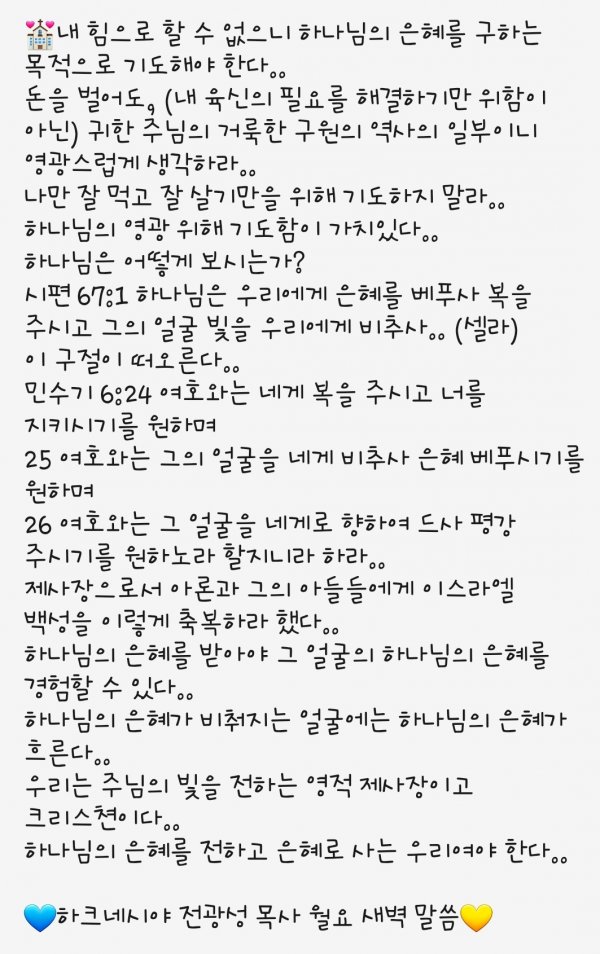 💒내 힘으로 할 수 없으니 하나님의 은혜를 구하는
목적으로 기도해야 한다..
돈을 벌어도, (내 육신의 필요를 해결하기만 위함이
아닌) 귀한 주님의 거룩한 구원의 역사의 일부이니
영광스럽게 생각하라..
나만 잘 먹고 잘 살기만을 위해 기도하지 말라..
하나님의 영광 위해 기도함이 가치있다..
하나님은 어떻게 보시는가?
시편 67:1 하나님은 우리에게 은혜를 베푸사 복을
주시고 그의 얼굴 빛을 우리에게 비추사.. (셀라)
이 구절이 떠오른다..
민수기 6:24 여호와는 네게 복을 주시고 너를
지키시기를 원하며
25 여호와는 그의 얼굴을 네게 비추사 은혜 베푸시기를
원하며
26 여호와는 그 얼굴을 네게로 향하여 드사 평강
주시기를 원하노라 할지니라 하라..
제사장으로서 아론과 그의 아들들에게 이스라엘
백성을 이렇게 축복하라 했다..
하나님의 은혜를 받아야 그 얼굴의 하나님의 은혜를
경험할 수 있다..
하나님의 은혜가 비춰지는 얼굴에는 하나님의 은혜가
흐른다..
우리는 주님의 빛을 전하는 영적 제사장이고
크리스천이다..
하나님의 은혜를 전하고 은혜로 사는 우리여야 한다..
💙하크네시야 전광성 목사 월요 새벽 말씀💛